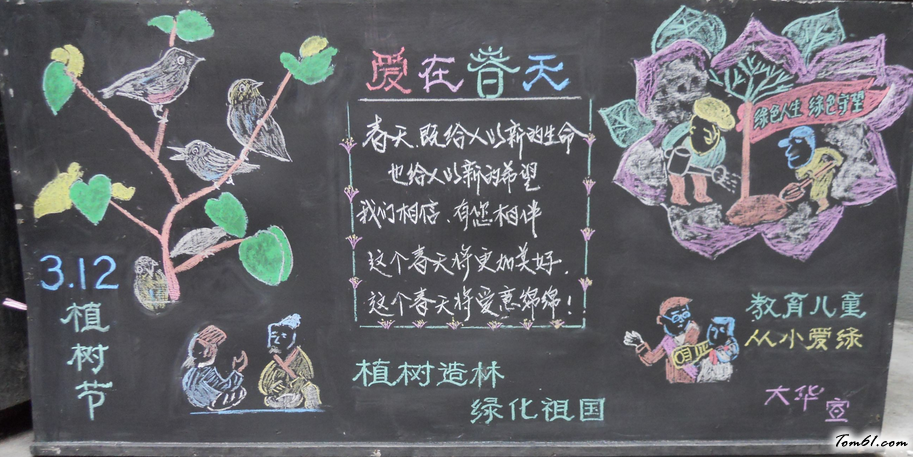 爱在春天
春天,既给人以新的生命
也给人以新的希望
我们相信,有您相伴
这个春天将更加美好,
这个春天将爱意绵绵!
绿色人生 绿色守望
3.12
植树节
植树造林
绿化祖国
教育儿童
从小爱绿
大华宣
Tom61.com